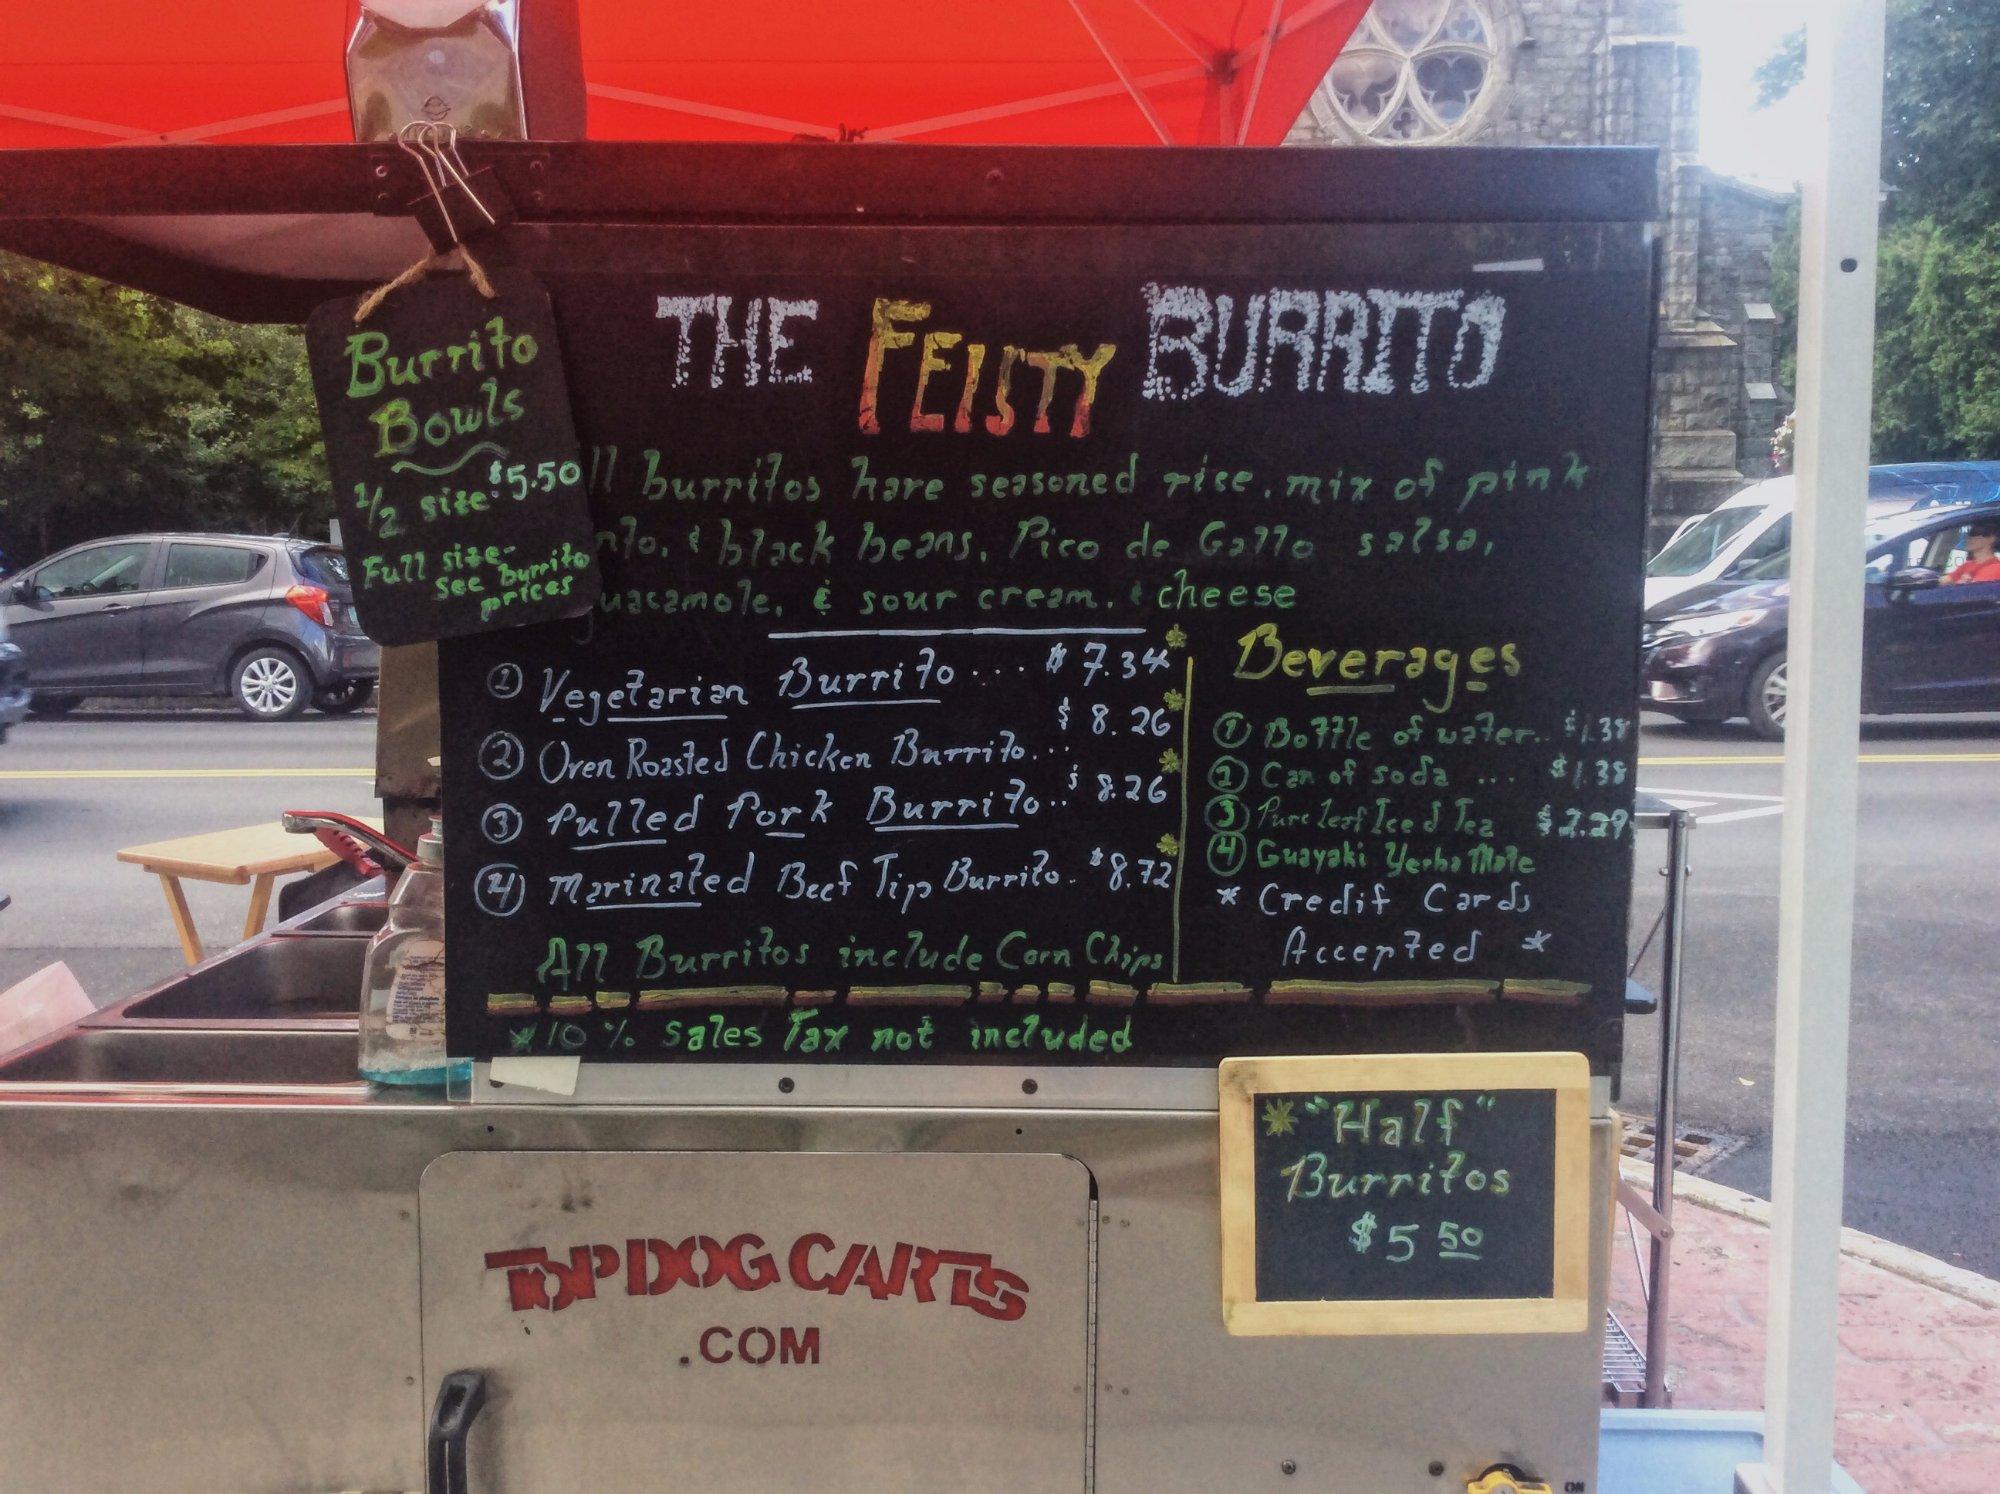 THE FEISTY BURRITO
Burrito
Bowls
1/2 size: $5.50
Full size-
see burrito
prices
ll burritos have seasoned rice, mix of pink
nto, & black beans, Pico de Gallo salsa,
uacamole, & sour cream, & cheese
① Vegetarian Burrito ... $7.34*
② Oven Roasted Chicken Burrito... $8.26*
③ Pulled Pork Burrito... $8.26*
④ Marinated Beef Tip Burrito. $8.72*
All Burritos include Corn Chips
*10% Sales Tax not included
Beverages
① Bottle of water.. $1.38
② Can of soda ... $1.38
③ Pure Leaf Iced Tea $2.29
④ Guayaki Yerba Mate
* Credit Cards
Accepted *
* "Half"
Burritos
$5 50
TOP DOG CARTS
.COM
ON